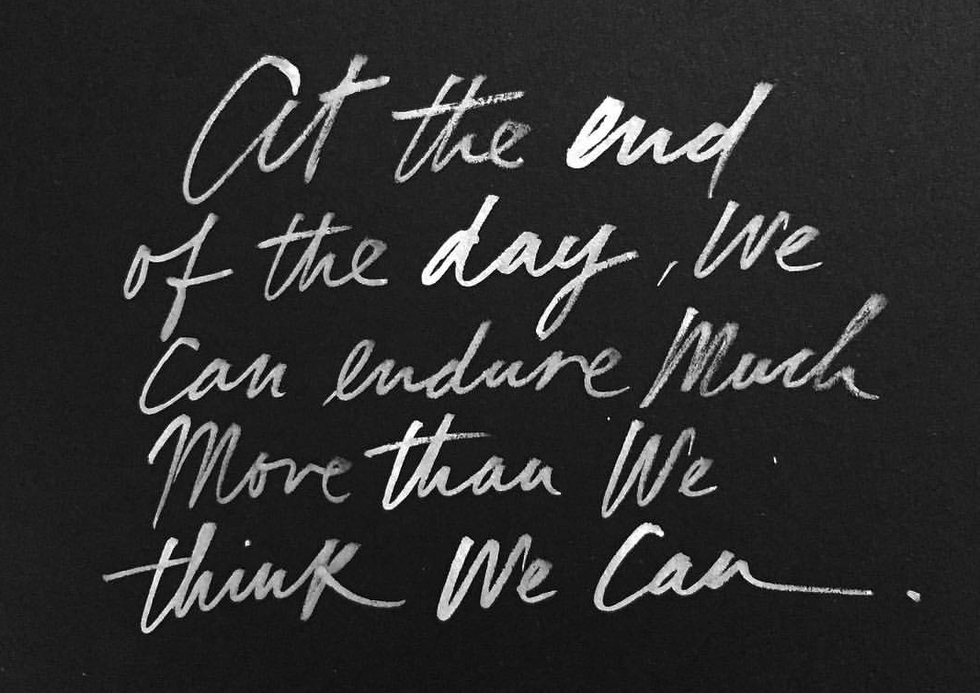 At the end
of the day, We
can endure Much
More than We
think We Can.